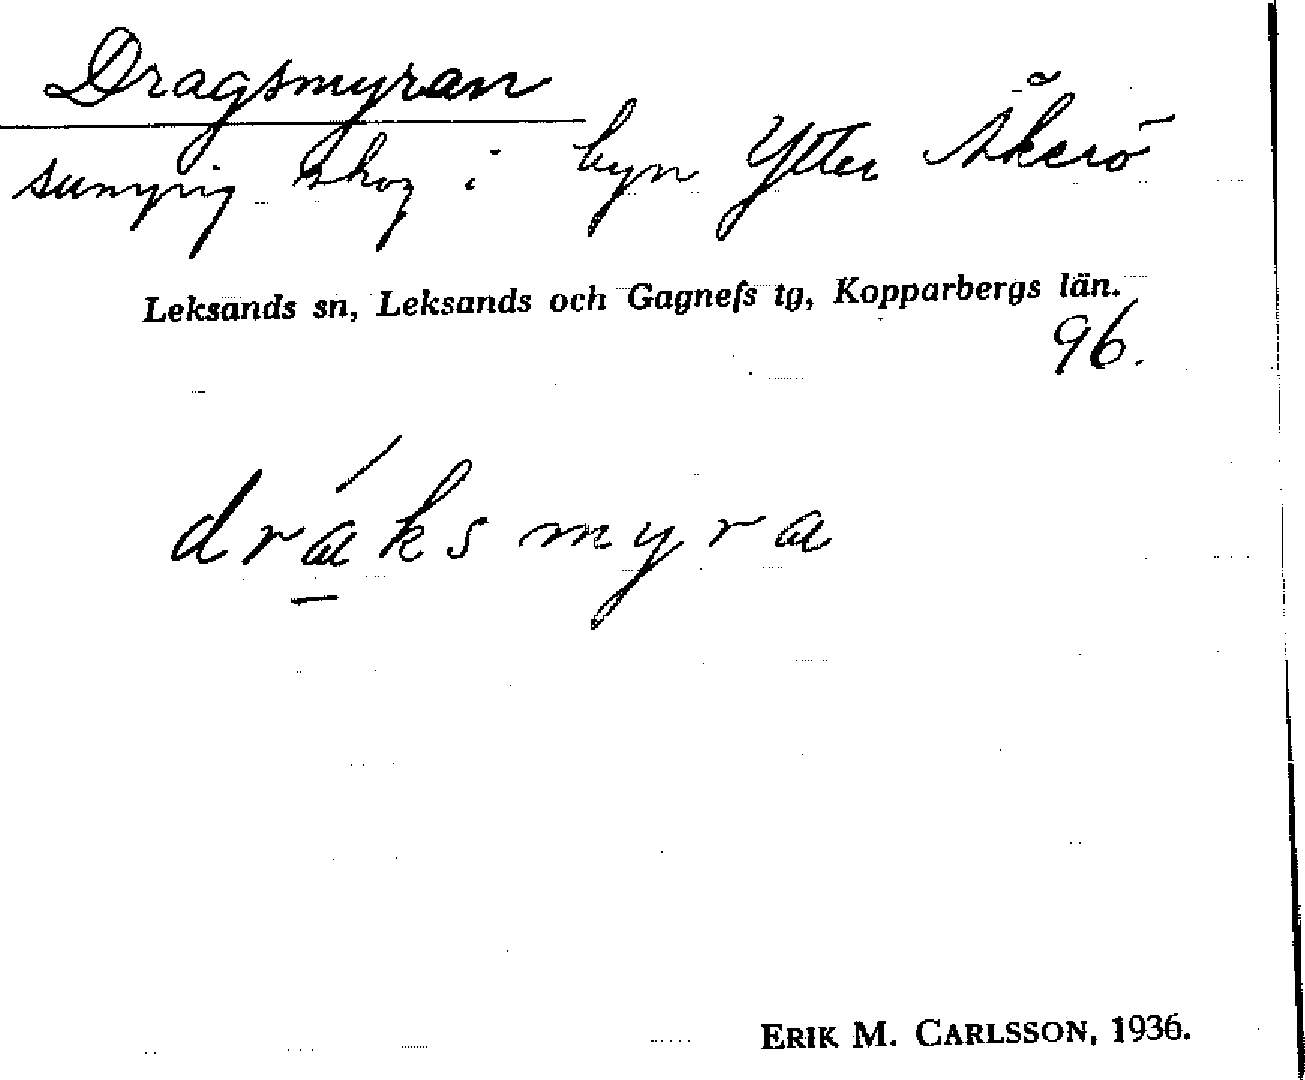 Dragsmyran
sumpig skog i byn Ytter Åkerö
Leksands sn, Leksands och Gagnefs tg, Kopparbergs län.
96.
dráksmyra
ERIK M. CARLSSON, 1936.